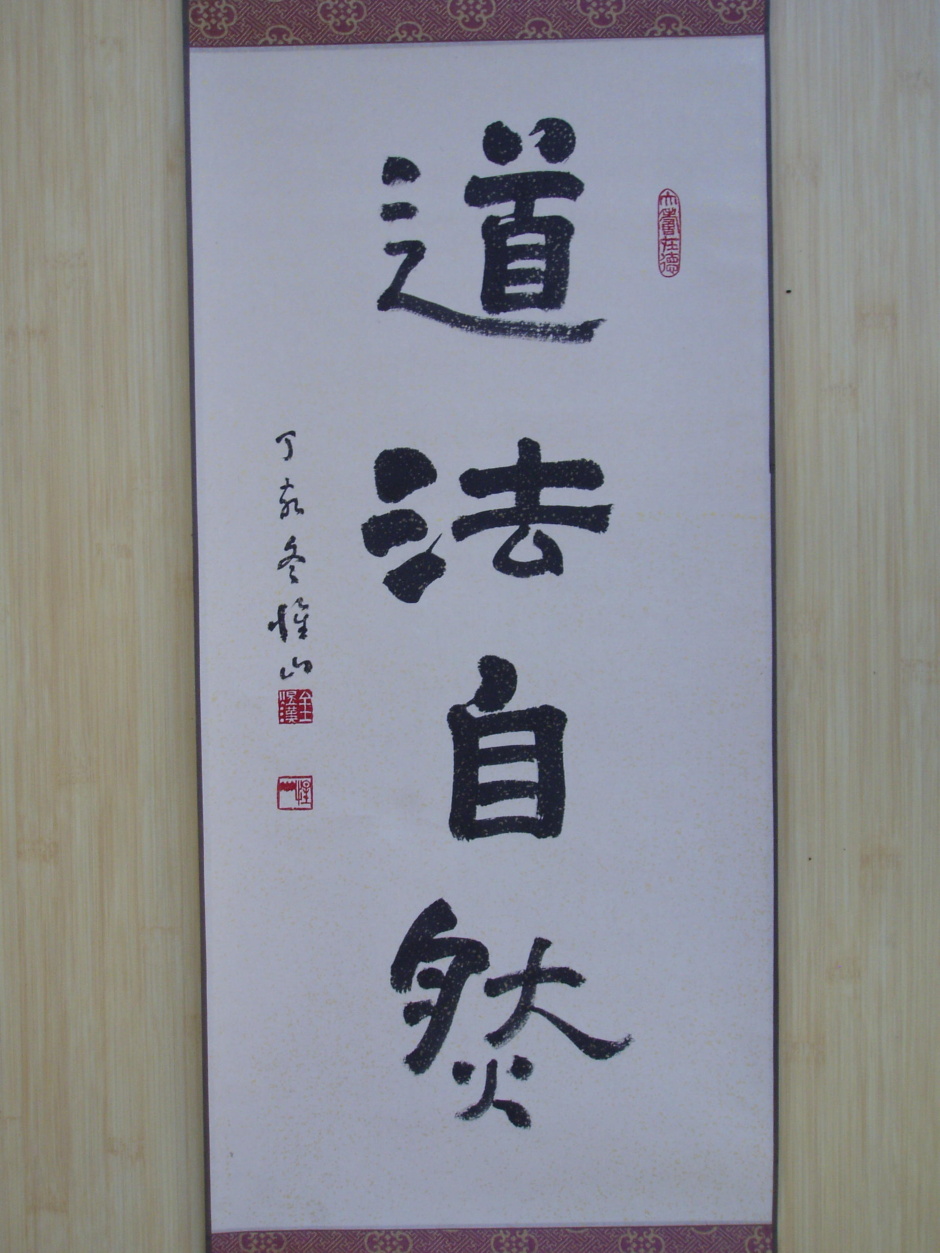 道法自然
丁亥冬惟山